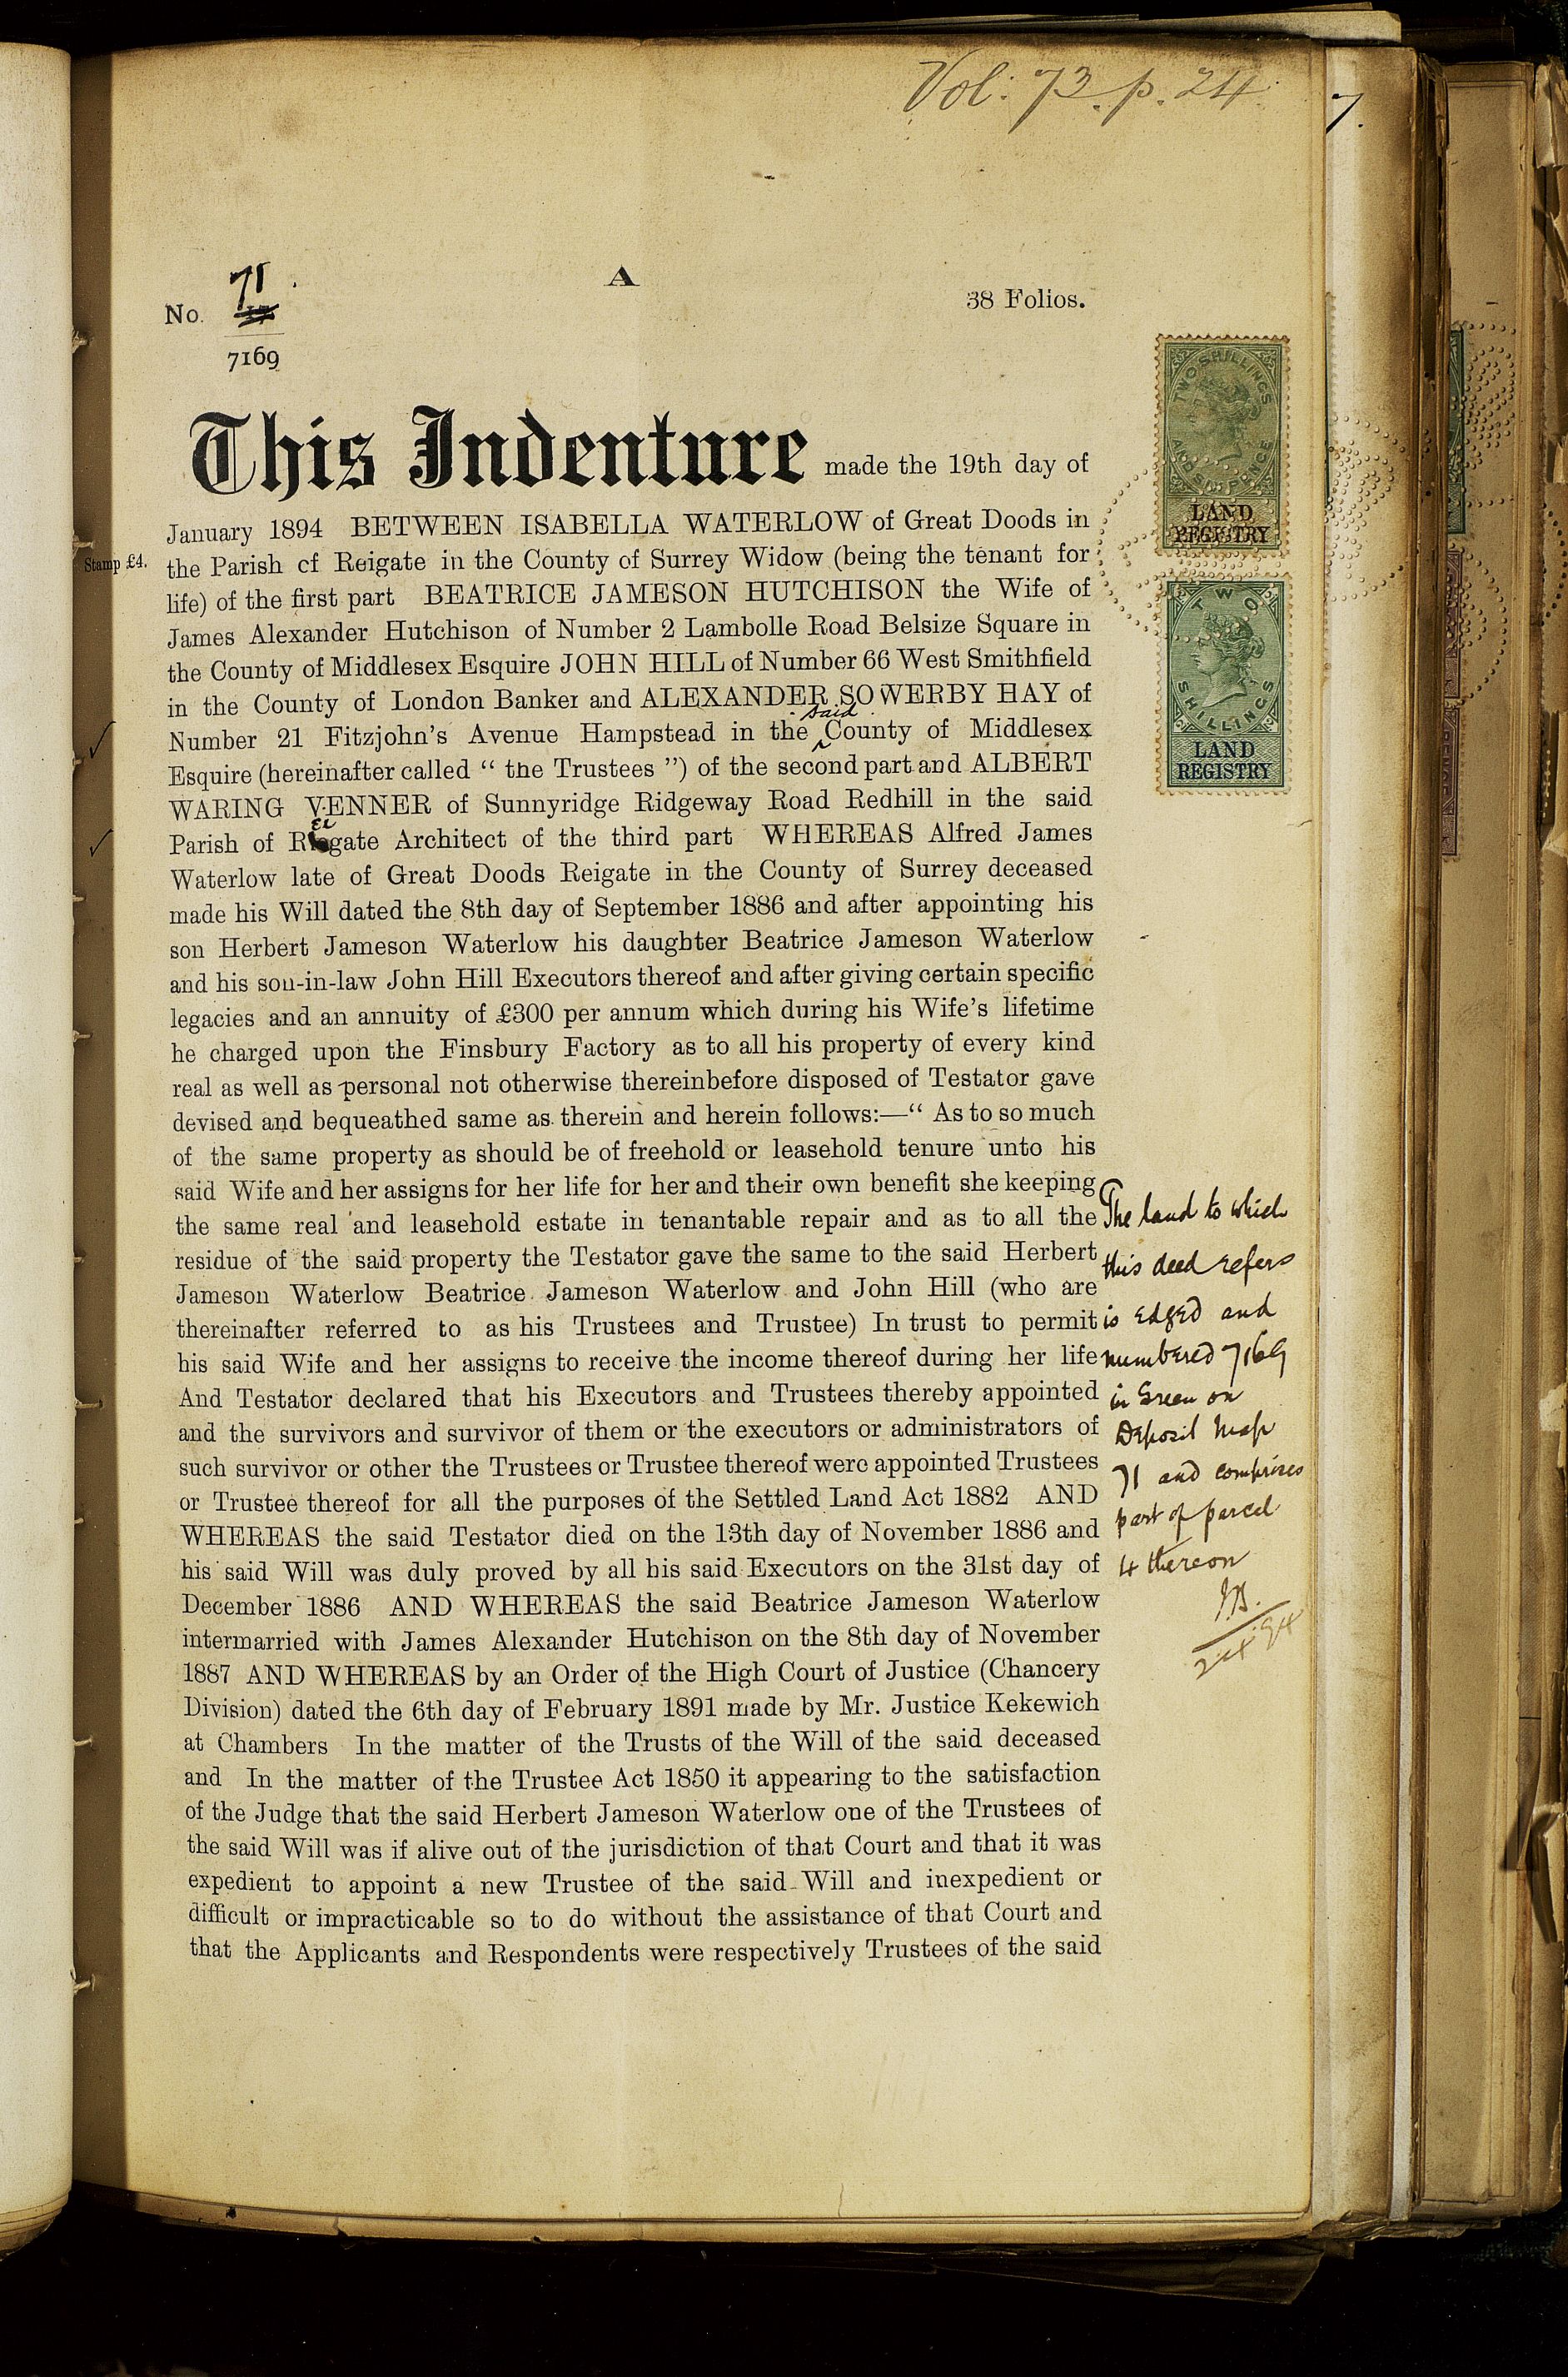 Vol: 73. p. 24.
7.
A
No. 71
7169
38 Folios.
This Indenture made the 19th day of
January 1894 BETWEEN ISABELLA WATERLOW of Great Doods in
Stamp £4.
the Parish cf Reigate in the County of Surrey Widow (being the tenant for
life) of the first part BEATRICE JAMESON HUTCHISON the Wife of
James Alexander Hutchison of Number 2 Lambolle Road Belsize Square in
the County of Middlesex Esquire JOHN HILL of Number 66 West Smithfield
in the County of London Banker and ALEXANDER SOWERBY HAY of
Number 21 Fitzjohn's Avenue Hampstead in the said County of Middlesex
Esquire (hereinafter called “ the Trustees ”) of the second part and ALBERT
WARING VENNER of Sunnyridge Ridgeway Road Redhill in the said
Parish of Reigate Architect of the third part WHEREAS Alfred James
Waterlow late of Great Doods Reigate in the County of Surrey deceased
made his Will dated the 8th day of September 1886 and after appointing his
son Herbert Jameson Waterlow his daughter Beatrice Jameson Waterlow
and his son-in-law John Hill Executors thereof and after giving certain specific
legacies and an annuity of £300 per annum which during his Wife's lifetime
he charged upon the Finsbury Factory as to all his property of every kind
real as well as personal not otherwise thereinbefore disposed of Testator gave
devised and bequeathed same as therein and herein follows:—“ As to so much
of the same property as should be of freehold or leasehold tenure unto his
said Wife and her assigns for her life for her and their own benefit she keeping
the same real and leasehold estate in tenantable repair and as to all the
residue of the said property the Testator gave the same to the said Herbert
Jameson Waterlow Beatrice Jameson Waterlow and John Hill (who are
thereinafter referred to as his Trustees and Trustee) In trust to permit
his said Wife and her assigns to receive the income thereof during her life
And Testator declared that his Executors and Trustees thereby appointed
and the survivors and survivor of them or the executors or administrators of
such survivor or other the Trustees or Trustee thereof were appointed Trustees
or Trustee thereof for all the purposes of the Settled Land Act 1882 AND
WHEREAS the said Testator died on the 13th day of November 1886 and
his said Will was duly proved by all his said Executors on the 31st day of
December 1886 AND WHEREAS the said Beatrice Jameson Waterlow
intermarried with James Alexander Hutchison on the 8th day of November
1887 AND WHEREAS by an Order of the High Court of Justice (Chancery
Division) dated the 6th day of February 1891 made by Mr. Justice Kekewich
at Chambers In the matter of the Trusts of the Will of the said deceased
and In the matter of the Trustee Act 1850 it appearing to the satisfaction
of the Judge that the said Herbert Jameson Waterlow one of the Trustees of
the said Will was if alive out of the jurisdiction of that Court and that it was
expedient to appoint a new Trustee of the said Will and inexpedient or
difficult or impracticable so to do without the assistance of that Court and
that the Applicants and Respondents were respectively Trustees of the said
TWO SHILLINGS
AND SIX PENCE
LAND
REGISTRY
TWO
SHILLINGS
LAND
REGISTRY
The land to which
this deed refers
is edged and
numbered 7169
in Green on
Deposit Map
71 and comprises
part of parcel
4 thereon